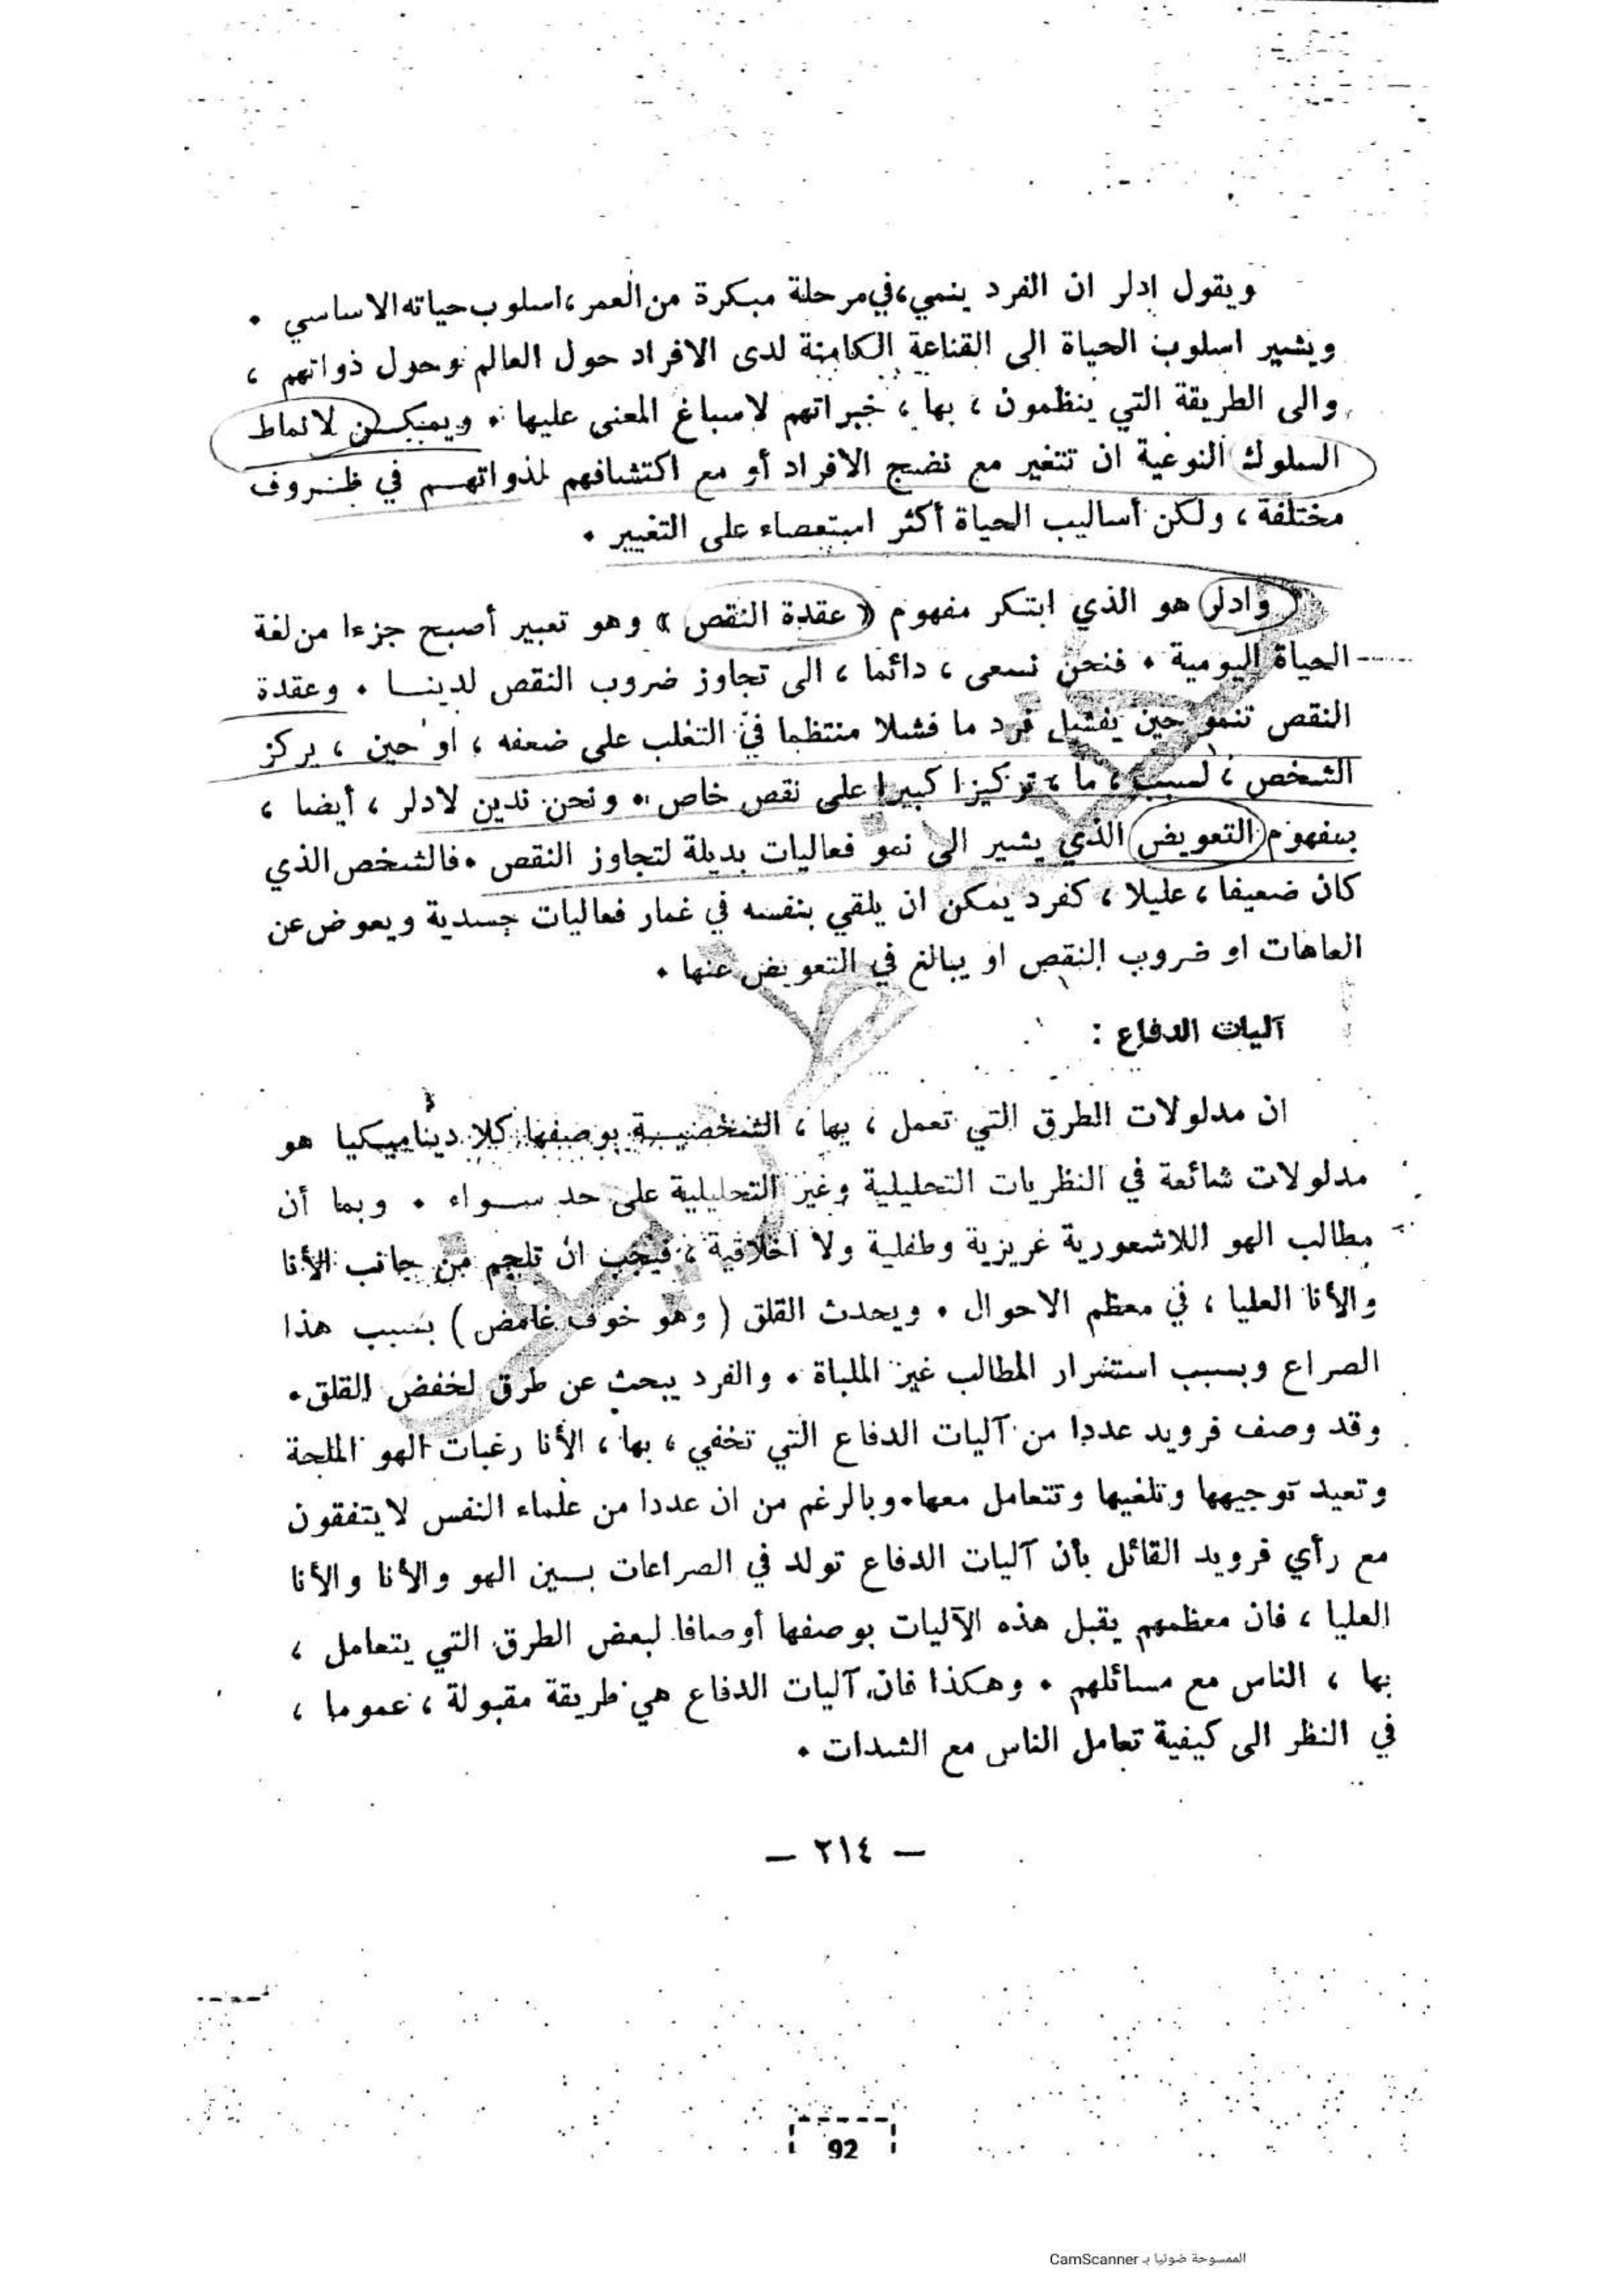 ويقول إدلر ان الفرد ينمي، في مرحلة مبكرة من العمر، اسلوب حياته الاساسي .
ويشير اسلوب الحياة الى القناعة الكامنة لدى الافراد حول العالم وحول ذواتهم ،
والى الطريقة التي ينظمون ، بها ، خبراتهم لاسباغ المعنى عليها . ويمكن لانماط
السلوك النوعية ان تتغير مع نضج الافراد أو مع اكتشافهم لذواتهم في ظروف
مختلفة ، ولكن أساليب الحياة أكثر استعصاء على التغيير .
وادلر هو الذي ابتكر مفهوم « عقدة النقص » وهو تعبير أصبح جزءا من لغة
الحياة اليومية . فنحن نسعى ، دائما ، الى تجاوز ضروب النقص لدينا . وعقدة
النقص تنمو حين يفشل فرد ما فشلا منتظما في التغلب على ضعفه ، او حين ، يركز
الشخص ، لسبب ، ما ، تركيزا كبيرا على نقص خاص . ونحن ندين لادلر ، أيضا ،
بمفهوم التعويض الذي يشير الى نمو فعاليات بديلة لتجاوز النقص . فالشخص الذي
كان ضعيفا ، عليلا ، كفرد يمكن ان يلقي بنفسه في غمار فعاليات جسدية ويعوض عن
العاهات او ضروب النقص او يبالغ في التعويض عنها .
آليات الدفاع :
ان مدلولات الطرق التي تعمل ، بها ، الشخصية بوصفها كلا ديناميكيا هو
مدلولات شائعة في النظريات التحليلية وغير التحليلية على حد سواء . وبما أن
مطالب الهو اللاشعورية غريزية وطفلية ولا اخلاقية ، فيجب ان تلجم من جانب الأنا
والأنا العليا ، في معظم الاحوال . ويحدث القلق ( وهو خوف غامض ) بسبب هذا
الصراع وبسبب استمرار المطالب غير الملباة . والفرد يبحث عن طرق لخفض القلق .
وقد وصف فرويد عددا من آليات الدفاع التي تخفي ، بها ، الأنا رغبات الهو الملحة
وتعيد توجيهها وتلغيها وتتعامل معها . وبالرغم من ان عددا من علماء النفس لا يتفقون
مع رأي فرويد القائل بأن آليات الدفاع تولد في الصراعات بين الهو والأنا والأنا
العليا ، فان معظمهم يقبل هذه الآليات بوصفها أوصافا لبعض الطرق التي يتعامل ،
بها ، الناس مع مسائلهم . وهكذا فان آليات الدفاع هي طريقة مقبولة ، عموما ،
في النظر الى كيفية تعامل الناس مع الشدات .
— ٢١٤ —
92
الممسوحة ضوئيا بـ CamScanner